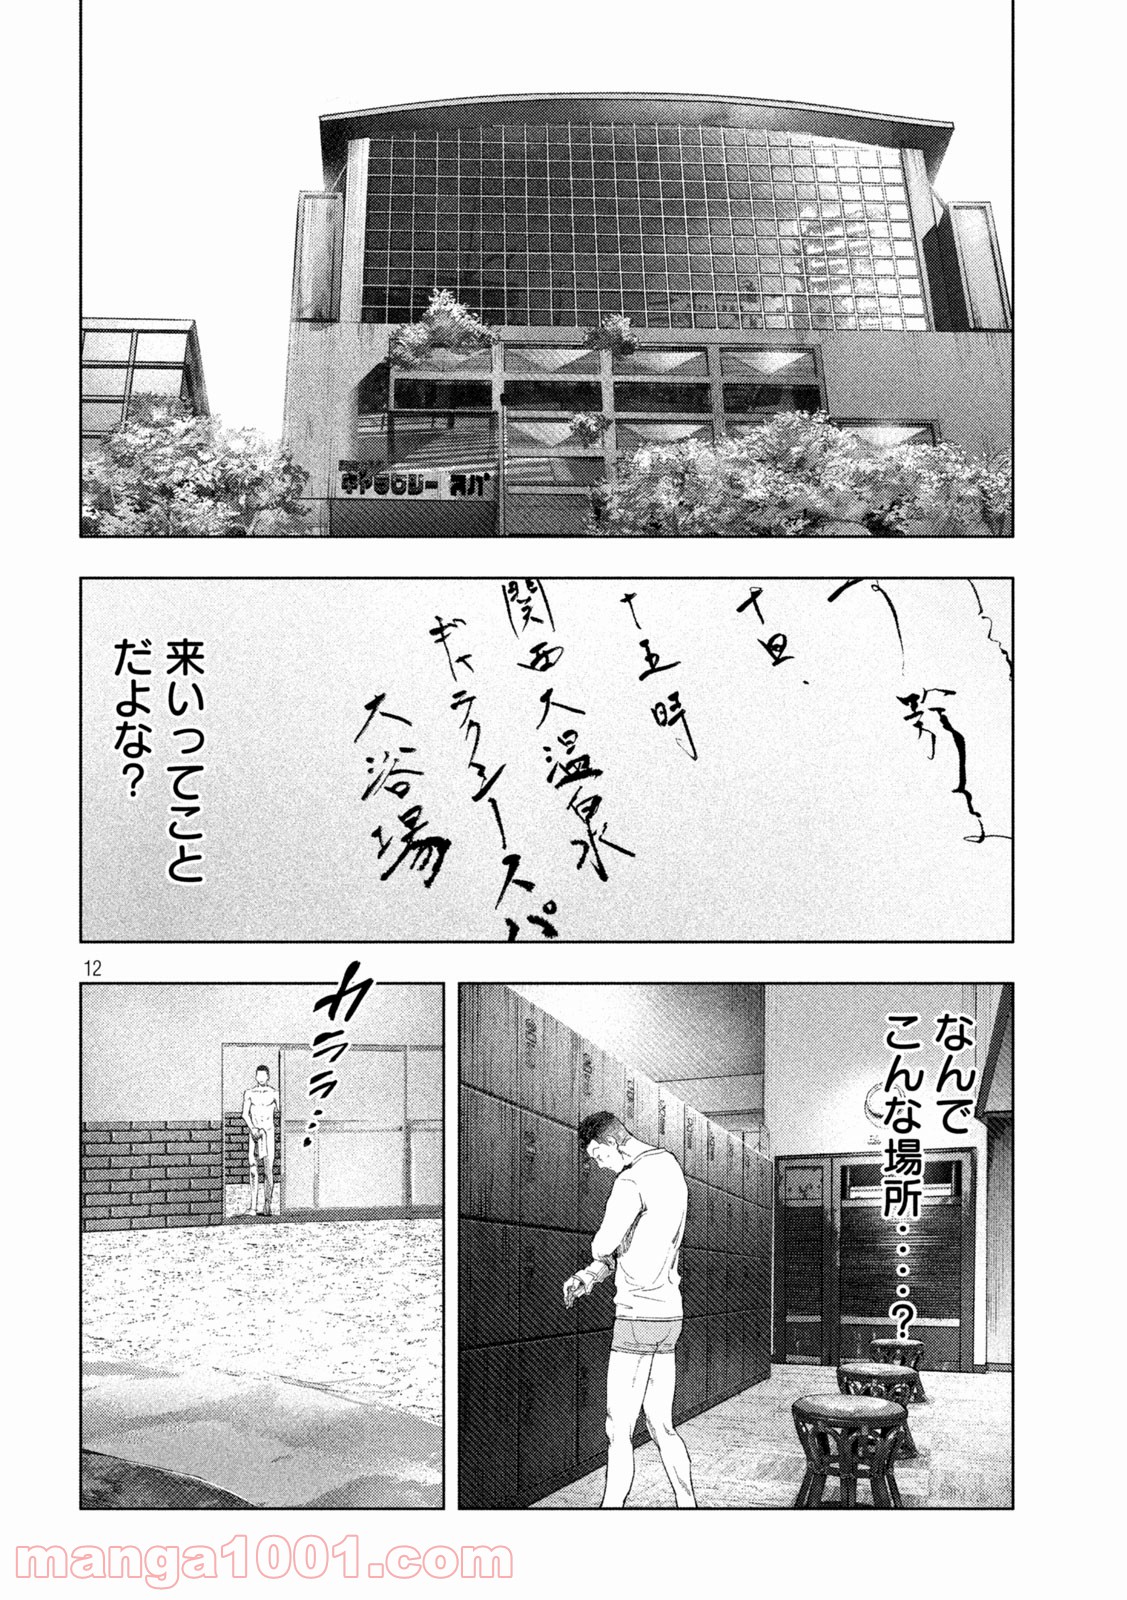 ギャラクシー スパ
十日、
十五時
関西大温泉
ギャラクシースパ
大浴場
来いってこと
だよな?
12
なんで
こんな場所……?
カララ…
manga1001.com